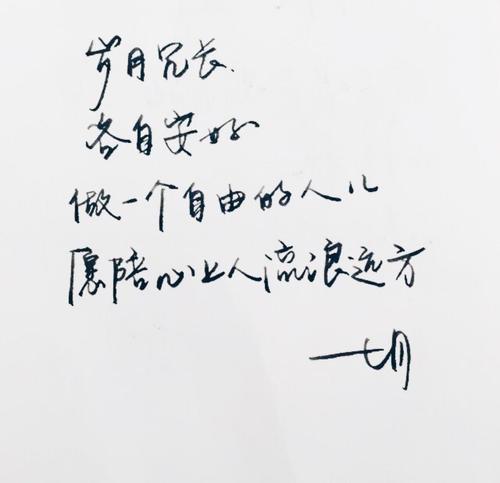 岁月冗长.
各自安好
做一个自由的人儿
愿陪心上人流浪远方
—七月